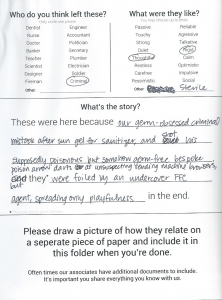 Who do you think left these?
What were they like?
Dentist
Engineer
Passive
Reliable
Nurse
Accountant
Touchy
Agressive
Doctor
Politician
Strong
Talkative
Banker
Secretary
Quiet
Rigid
Teacher
Plumber
Thoughtful
Calm
Scientist
Electrician
Restless
Optimistic
Designer
Soldier
Carefree
Impulsive
Fireman
Criminal
Pessimistic
Social
Other:
Other:
Sterile
What's the story?
These were here because our germ-obsessed criminal
mistook after sun gel for sanitizer, and shot his
supposedly poisonous but somehow germ-free bespoke
poison arrow darts at unsuspecting vending machine browsers,
but
and they were foiled by an undercover FFC
agent, spreading only playfulness in the end.
Please draw a picture of how they relate on
a seperate piece of paper and include it in
this folder when you're done.
Often times our associates have additional documents to include.
It's important you share everything you know with us.